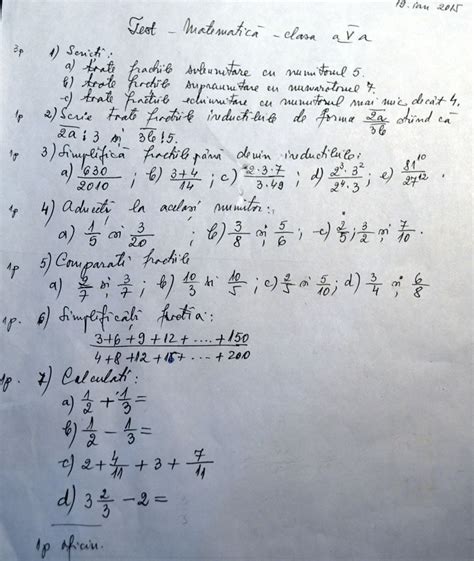 19. ian 2015
Test - Matematică - clasa a V a
3p 1) Scrieți:
a) toate fracțiile subunitare cu numitorul 5.
b) toate fracțiile supraunitare cu numărătorul 7.
c) toate fracțiile echiunitare cu numitorul mai mic decât 4.
1p 2) Scrie toate fracțiile ireductibile de forma 2a/3b știind că
2a ⋮ 3 și 3b ⋮ 5.
1p 3) Simplifică fracțiile până devin ireductibile:
a) 630/2010 ; b) 3+4/14 ; c) 2·3·7/3·49 ; d) 2³·3²/2⁴·3 ; e) 81¹⁰/27¹² .
1p 4) Aduceți la același numitor:
a) 1/5 și 3/20 ; b) 3/8 și 5/6 ; c) 2/5 ; 3/2 și 7/10 .
1p 5) Comparați fracțiile
a) 2/7 și 3/7 ; b) 10/3 și 10/5 ; c) 2/5 și 5/10 ; d) 3/4 și 6/8
1p. 6) Simplificați fracția:
3+6+9+12+....+150
4+8+12+16+...+200
1p. 7) Calculați:
a) 1/2 + 1/3 =
b) 1/2 - 1/3 =
c) 2 + 4/11 + 3 + 7/11
d) 3 2/3 - 2 =
1p oficiu.